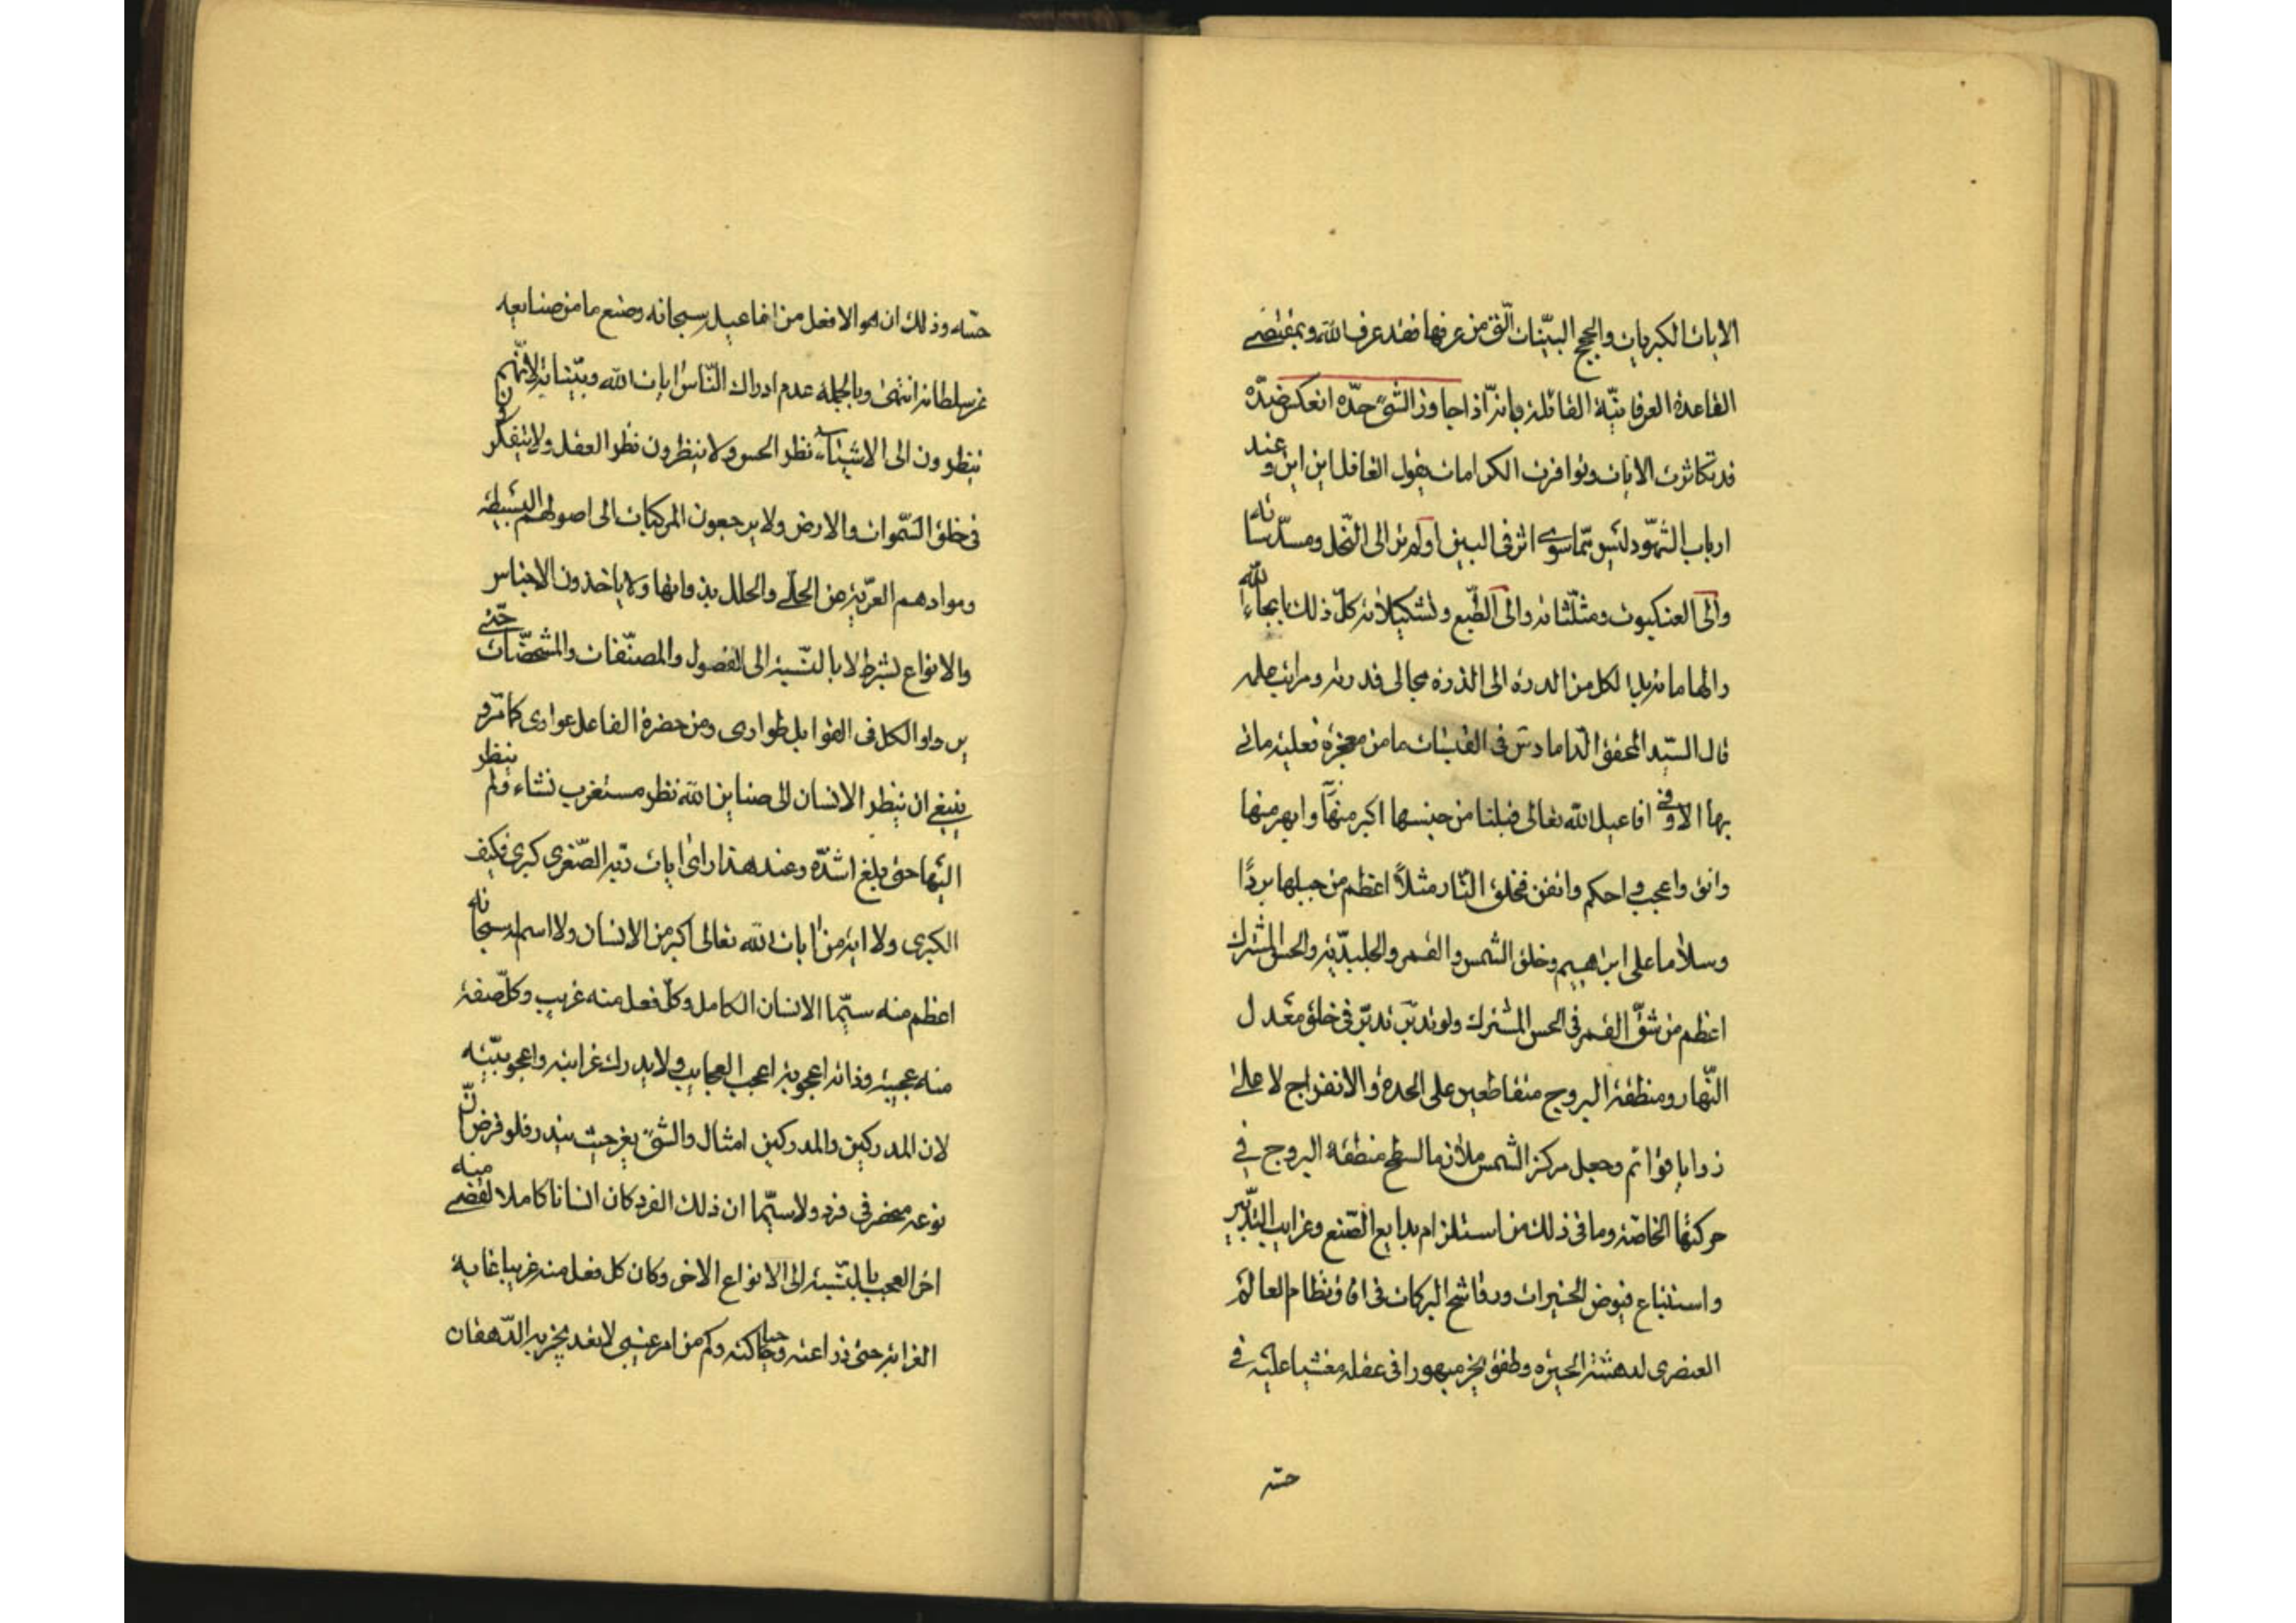 الايات الكبريات والحجج البيّنات الّتى من عرفها فقد عرف الله وبمقتضى
القاعدة العرفانيّة القائلة بانه اذا جاوز الشىء حدّه انعكس ضدّه
قد تكاثرت الايات وتوافرت الكرامات يقول الغافل اين اين وعند
ارباب الشّهود ليس ممّا سوى اثر فى البين اولم تر الى النّحل ومسدّساته
والى العنكبوت ومثلّثاته والى الطّبع وتشكيلاته كلّ ذلك بايحاء الله
والهاماته بل الكل من الدرة الى الذرة مجالى قدرته ومراتب علمه
قال السيّد المحقق الدّاماد س فى القبسات ما من معجزة فعلية ماتى
بها الا وفى افاعيل الله تعالى قبلنا من جنسها اكبر منها وابهر منها
وانق واعجب واحكم واتقن فخلق النّار مثلاً اعظم من جعلها بردًا
وسلاما على ابراهيم وخلق الشمس والقمر والجليديّة والحس المشترك
اعظم من شقّ القمر فى الحس المشترك ولو تدبّر تدبّر فى خلق معدل
النّهار ومنطقة البروج متقاطعين على الحدة والانفراج لا على
زوايا قوائم وجعل مركز الشمس ملازما لسطح منطقة البروج فى
حركتها الخاصّة وما فى ذلك من استلزام بدايع الصّنع وغرايب التدبير
واستتباع فيوض الخيرات ورواشح البركات فى افاق نظام العالم
العنصرى لدهشته الحيرة وطفق يخر مبهورا فى عقله مغشيا عليه فى
حسّه
حسّه وذلك ان هو الا فعل من افاعيله سبحانه وصنع ما من صنايعه
عز سلطانه انتهى وبالجملة عدم ادراك النّاس ايات الله وبيّناته لانّهم
ينظرون الى الاشياء نظر الحس ولا ينظرون نظر العقل ولا يتفكرون
فى خلق السّموات والارض ولا يرجعون المركبات الى اصولهم البسيطة
وموادهم العريّة عن الحلّى والحلل بذواتها ولا ياخذون الاجناس
والانواع بشرط لا بالنّسبة الى الفصول والمصنّفات والمشخّصات حتى
يرواو الكل فى القوابل طوارى ومن حضرة الفاعل عوارى كما تروا
ينبغى ان ينظر الانسان الى صنايع الله نظر مستغرب نشاء ولم ينظر
اليها حتى بلغ اشدّه وعند هذا راى ايات ربّه الصّغرى كبرى فكيف
الكبرى ولا اية من ايات الله تعالى اكبر من الانسان ولا اسم له سبحانه
اعظم منه سيّما الانسان الكامل وكلّ فعل منه غريب وكلّ صفة
منه عجيبة وذاته اعجوبة اعجب العجايب ولا يدرك غرابته واعجوبيّته
لان المدركين والمدركين امثال والشىء يعز حيث يندر فلو فرض انّ
نوعه منحصر فى فرد ولا سيّما ان ذلك الفرد كان انسانا كاملا لقضى منه
اخر العجب بالنّسبة الى الانواع الاخر وكان كل فعل منه غريبا غاية
الغرابة حتى زراعته وحياكته وكم من امر عنيبى لا يعد بخزية الدّهقان